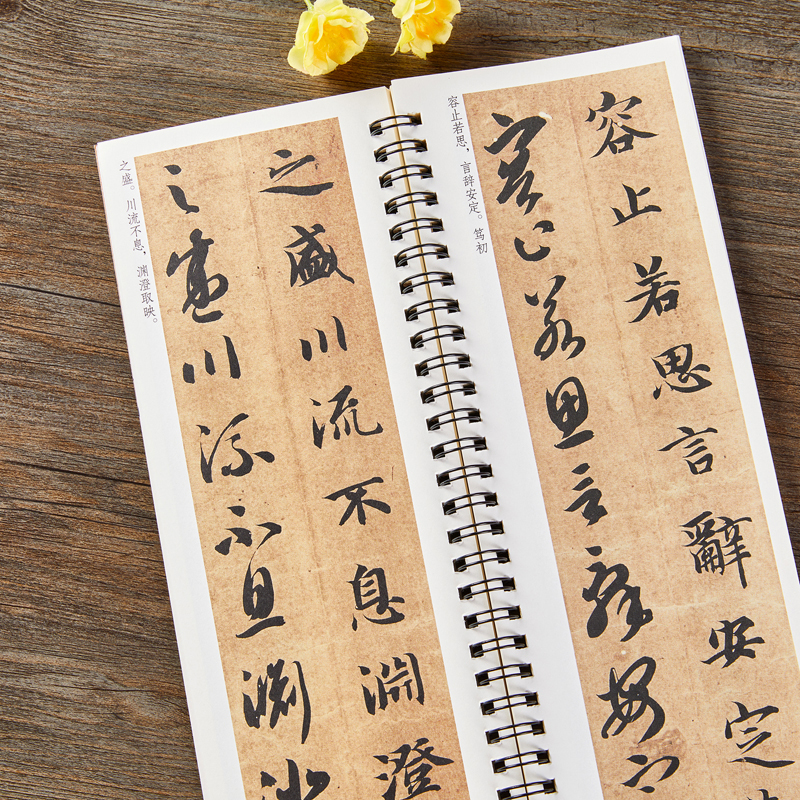 之盛川流不息淵澄
之盛川流不息淵
之盛。川流不息，渊澄取映。
容止若思言辭安定
容止若思言辭安
容止若思，言辞安定。笃初